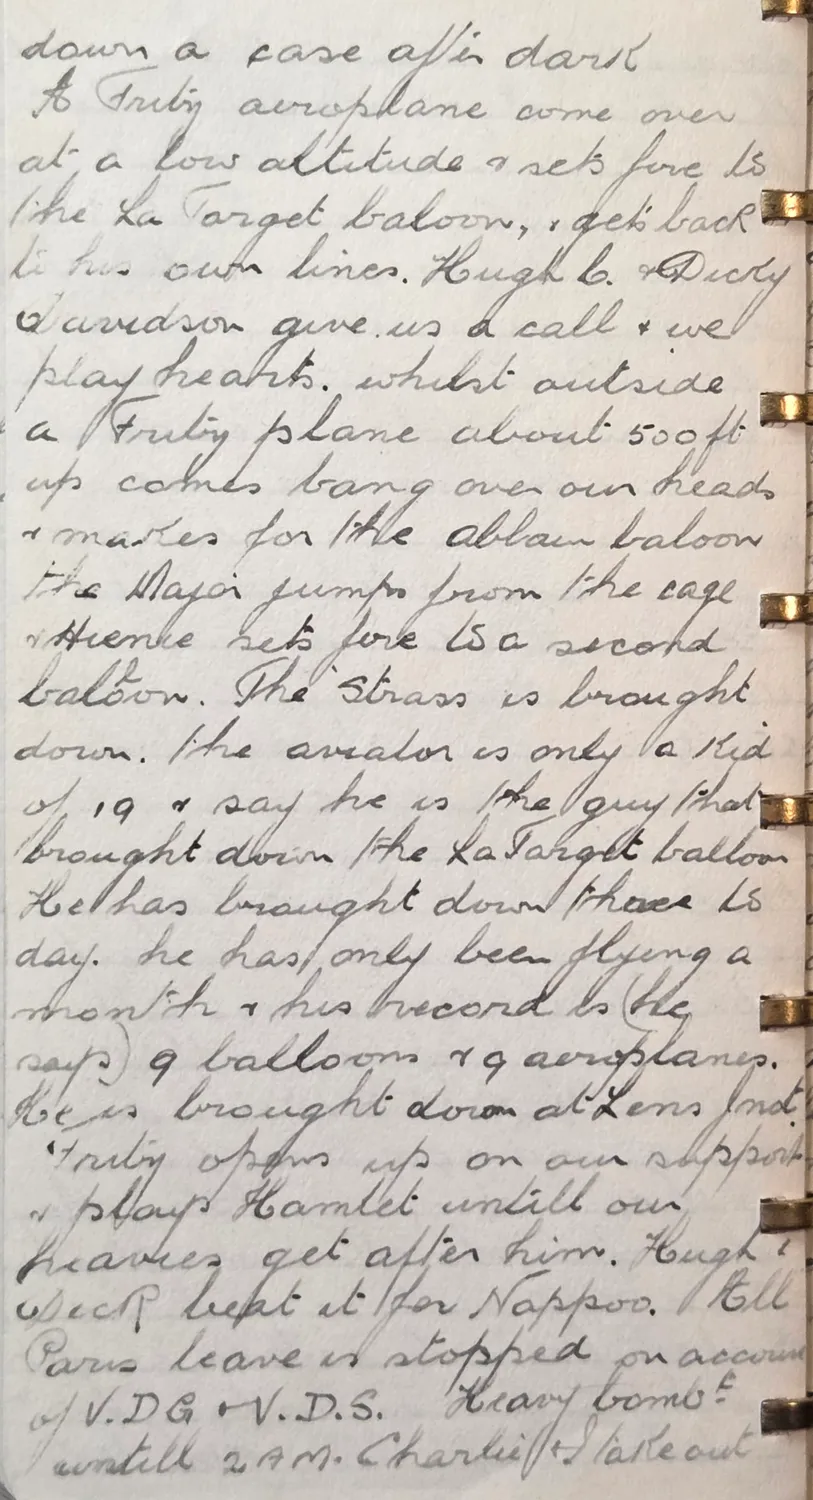 down a case after dark
A Fritz aeroplane come over
at a low altitude & sets fire to
the La Target baloon, & gets back
to his own lines. Hugh C. & Dicky
Davidson give us a call & we
play hearts. whilst outside
a Fritz plane about 500ft
up comes bang over our heads
& makes for the ablain baloon
the Major jumps from the cage
& Hienie sets fire to a second
baloon. The Strass is brought
down. the aviator is only a kid
of 19 & say he is the guy that
brought down the La Target balloon
He has brought down three to
day. he has only been flying a
month & his record is (he
says) 9 balloons & 9 aeroplanes.
He is brought down at Lens Jnct
Fritz opens up on our support
& plays Hamlet untill our
heavies get after him. Hugh &
Dick beat it for Nappoo. All
Paris leave is stopped on accoun
of V.D.G & V.D.S. Heavy bombt
untill 2 AM. Charlie & I take out